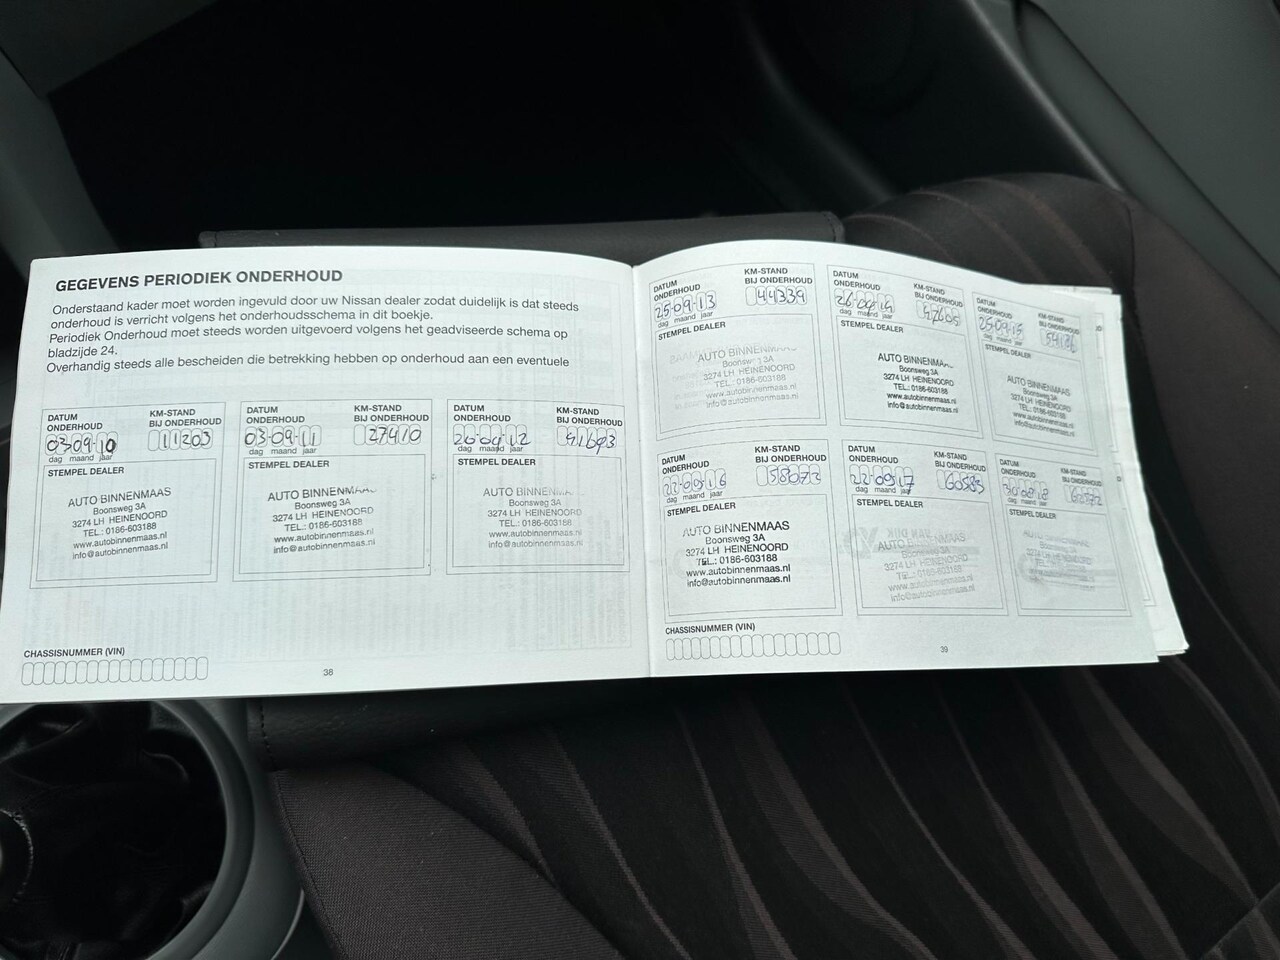 GEGEVENS PERIODIEK ONDERHOUD
Onderstaand kader moet worden ingevuld door uw Nissan dealer zodat duidelijk is dat steeds
onderhoud is verricht volgens het onderhoudsschema in dit boekje.
Periodiek Onderhoud moet steeds worden uitgevoerd volgens het geadviseerde schema op
bladzijde 24.
Overhandig steeds alle bescheiden die betrekking hebben op onderhoud aan een eventuele
DATUM
ONDERHOUD
KM-STAND
BIJ ONDERHOUD
03-09-10
11203
dag maand jaar
STEMPEL DEALER
AUTO BINNENMAAS
Boonsweg 3A
3274 LH HEINENOORD
TEL.: 0186-603188
www.autobinnenmaas.nl
info@autobinnenmaas.nl
DATUM
ONDERHOUD
KM-STAND
BIJ ONDERHOUD
03-09-11
27410
dag maand jaar
STEMPEL DEALER
AUTO BINNENMAAS
Boonsweg 3A
3274 LH HEINENOORD
TEL.: 0186-603188
www.autobinnenmaas.nl
info@autobinnenmaas.nl
DATUM
ONDERHOUD
KM-STAND
BIJ ONDERHOUD
20-09-12
41693
dag maand jaar
STEMPEL DEALER
AUTO BINNENMAAS
Boonsweg 3A
3274 LH HEINENOORD
TEL.: 0186-603188
www.autobinnenmaas.nl
info@autobinnenmaas.nl
CHASSISNUMMER (VIN)
38
DATUM
ONDERHOUD
KM-STAND
BIJ ONDERHOUD
25-09-13
44339
dag maand jaar
STEMPEL DEALER
AUTO BINNENMAAS
Boonsweg 3A
3274 LH HEINENOORD
TEL.: 0186-603188
www.autobinnenmaas.nl
info@autobinnenmaas.nl
DATUM
ONDERHOUD
KM-STAND
BIJ ONDERHOUD
26-09-14
47605
dag maand jaar
STEMPEL DEALER
AUTO BINNENMAAS
Boonsweg 3A
3274 LH HEINENOORD
TEL.: 0186-603188
www.autobinnenmaas.nl
info@autobinnenmaas.nl
DATUM
ONDERHOUD
KM-STAND
BIJ ONDERHOUD
25-09-15
dag maand jaar
STEMPEL DEALER
AUTO BINNENMAAS
Boonsweg 3A
3274 LH HEINENOORD
TEL.: 0186-603188
www.autobinnenmaas.nl
info@autobinnenmaas.nl
DATUM
ONDERHOUD
KM-STAND
BIJ ONDERHOUD
22-09-16
58072
dag maand jaar
STEMPEL DEALER
AUTO BINNENMAAS
Boonsweg 3A
3274 LH HEINENOORD
TEL.: 0186-603188
www.autobinnenmaas.nl
info@autobinnenmaas.nl
DATUM
ONDERHOUD
KM-STAND
BIJ ONDERHOUD
22-09-17
60583
dag maand jaar
STEMPEL DEALER
AUTO BINNENMAAS
Boonsweg 3A
3274 LH HEINENOORD
TEL.: 0186-603188
www.autobinnenmaas.nl
info@autobinnenmaas.nl
DATUM
ONDERHOUD
KM-STAND
BIJ ONDERHOUD
30-08-18
dag maand jaar
STEMPEL DEALER
CHASSISNUMMER (VIN)
39